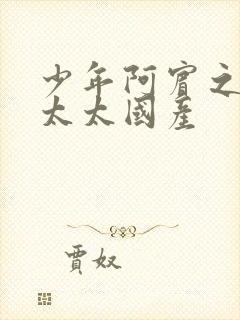 少年阿賓之
太太國產
賈奴